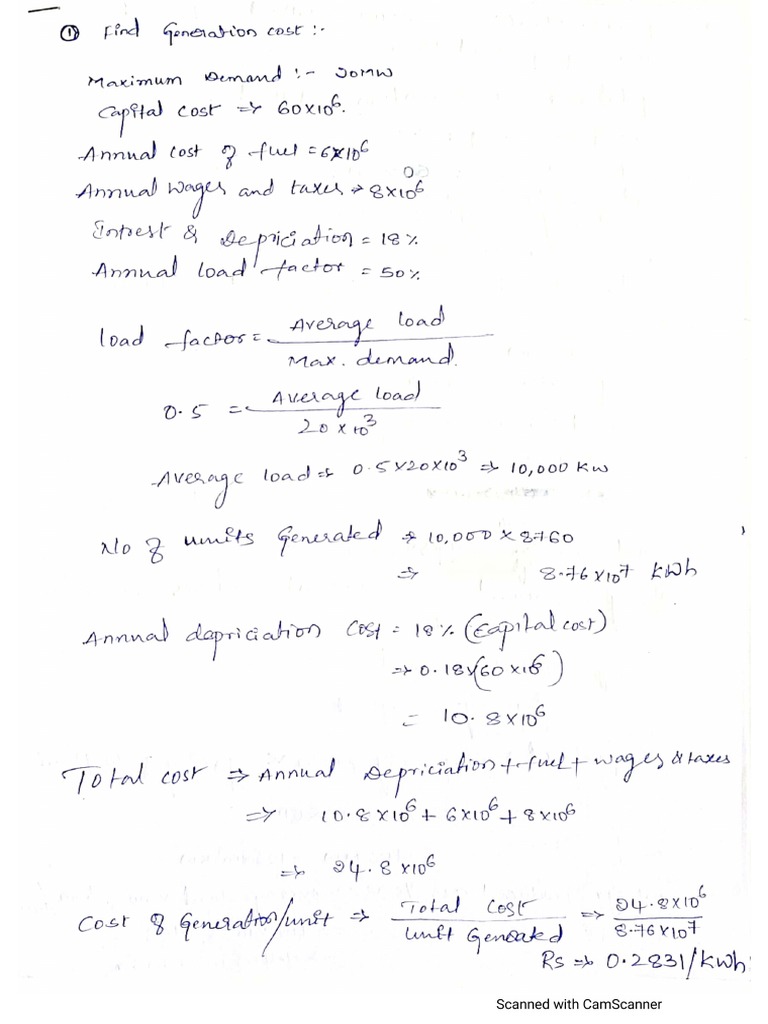 ① Find Generation cost :-
Maximum Demand :- 20MW
Capital cost ⇒ 60×10⁶.
Annual cost of fuel = 6×10⁶
Annual wages and taxes → 8×10⁶
Intrest & Depriciation = 18%
Annual load factor = 50%
load factor = Average load / Max. demand.
0.5 = Average load / 20×10³
Average load ⇒ 0.5×20×10³ ⇒ 10,000 kw
No of units Generated ⇒ 10,000×8760
⇒ 8.76×10⁷ kWh
Annual depriciation cost = 18% (Capital cost)
⇒ 0.18×(60×10⁶)
= 10.8×10⁶
Total cost ⇒ Annual Depriciation + fuel + wages & taxes
⇒ 10.8×10⁶ + 6×10⁶ + 8×10⁶
⇒ 24.8×10⁶
Cost of Generation/unit ⇒ Total cost / Unit Genoated ⇒ 24.8×10⁶ / 8.76×10⁷
Rs ⇒ 0.2831/kwh
Scanned with CamScanner